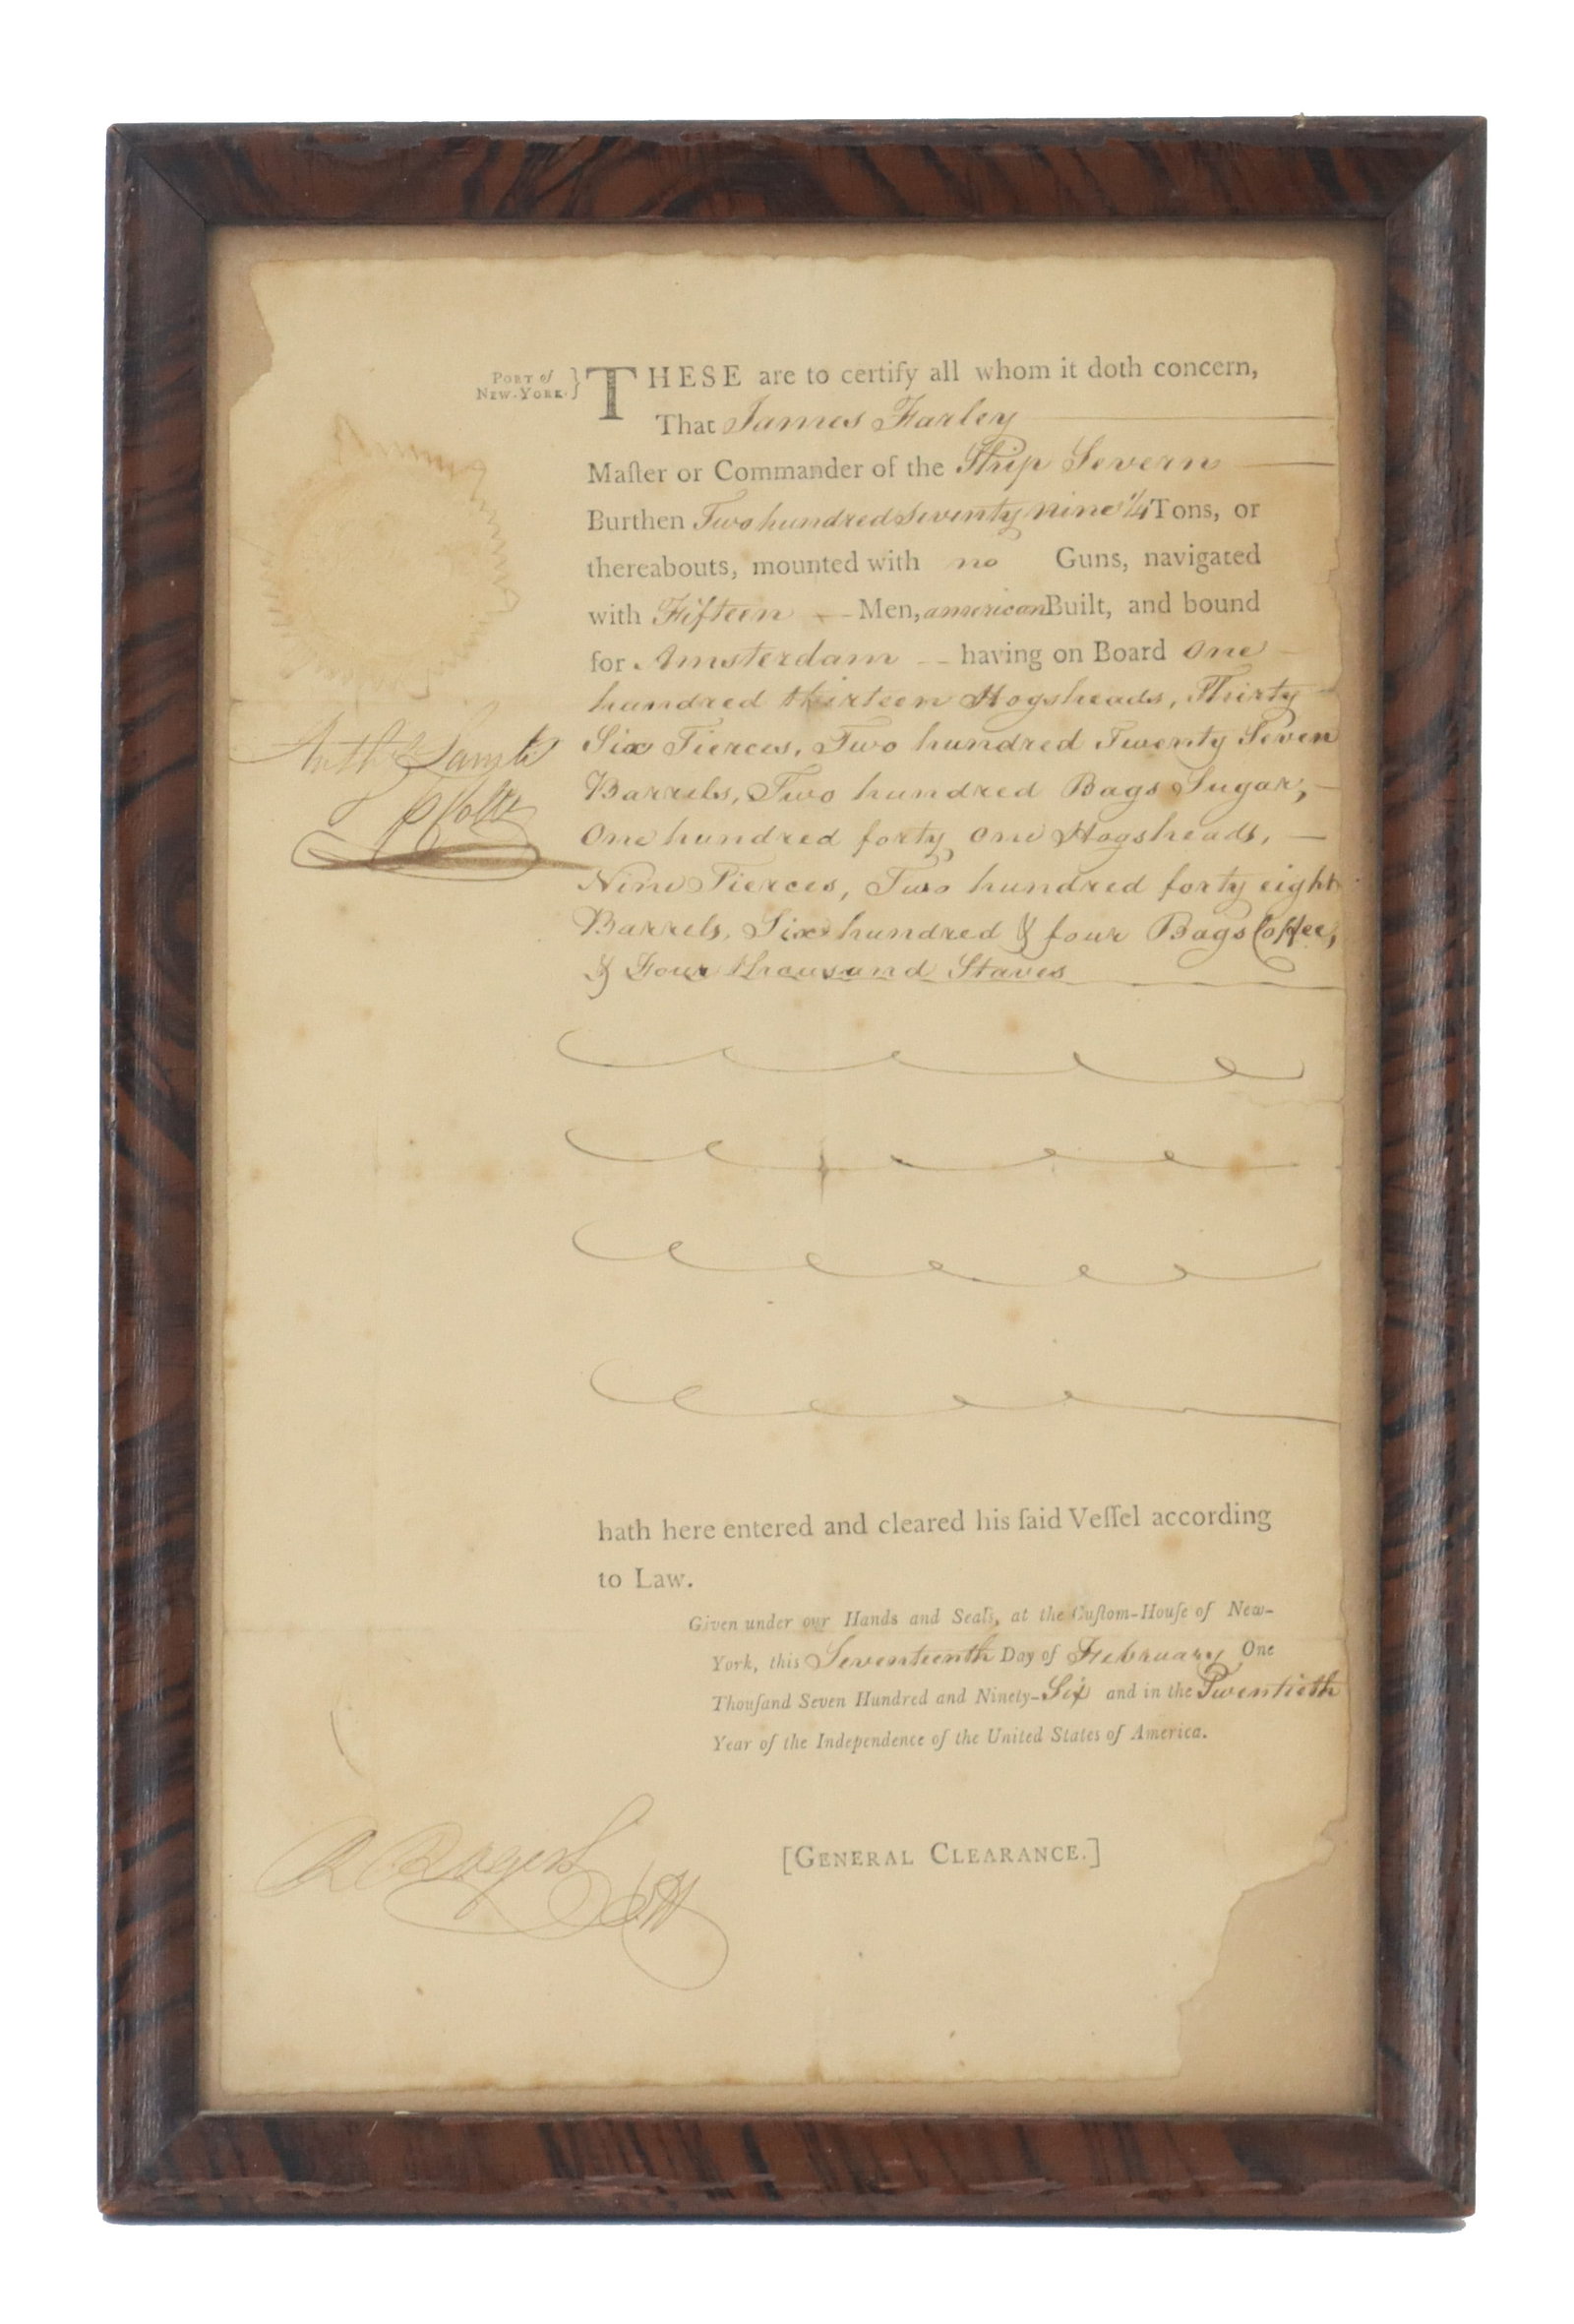 PORT of
NEW-YORK.}
THESE are to certify all whom it doth concern,
That James Farley
Maſter or Commander of the Ship Severn
Burthen Two hundred Seventy nine 1/4 Tons, or
thereabouts, mounted with no Guns, navigated
with Fifteen Men, american Built, and bound
for Amsterdam having on Board One
hundred thirteen Hogsheads, Thirty
Six Tierces, Two hundred Twenty Seven
Barrels, Two hundred Bags Sugar,
One hundred forty one Hogsheads,
Nine Tierces, Two hundred forty eight
Barrels, Six hundred & four Bags Coffee,
& Four thousand Staves
hath here entered and cleared his ſaid Veſſel according
to Law.
Given under our Hands and Seals, at the Cuſtom-Houſe of New-
York, this Seventeenth Day of February One
Thouſand Seven Hundred and Ninety-Six and in the Twentieth
Year of the Independence of the United States of America.
[GENERAL CLEARANCE.]
R Rogers